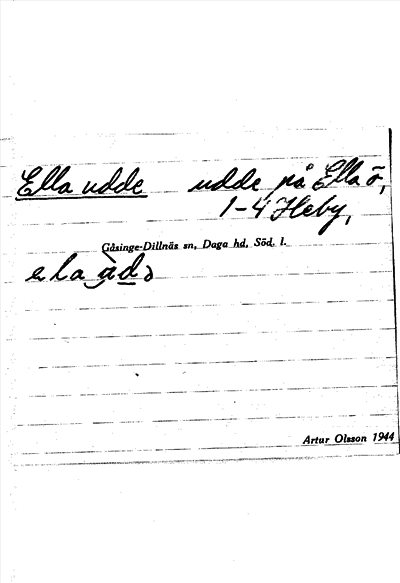 Ella udde udde på Ella ö,
1-4 Heby,
Gåsinge-Dillnäs sn, Daga hd, Söd. l.
Artur Olsson 1944